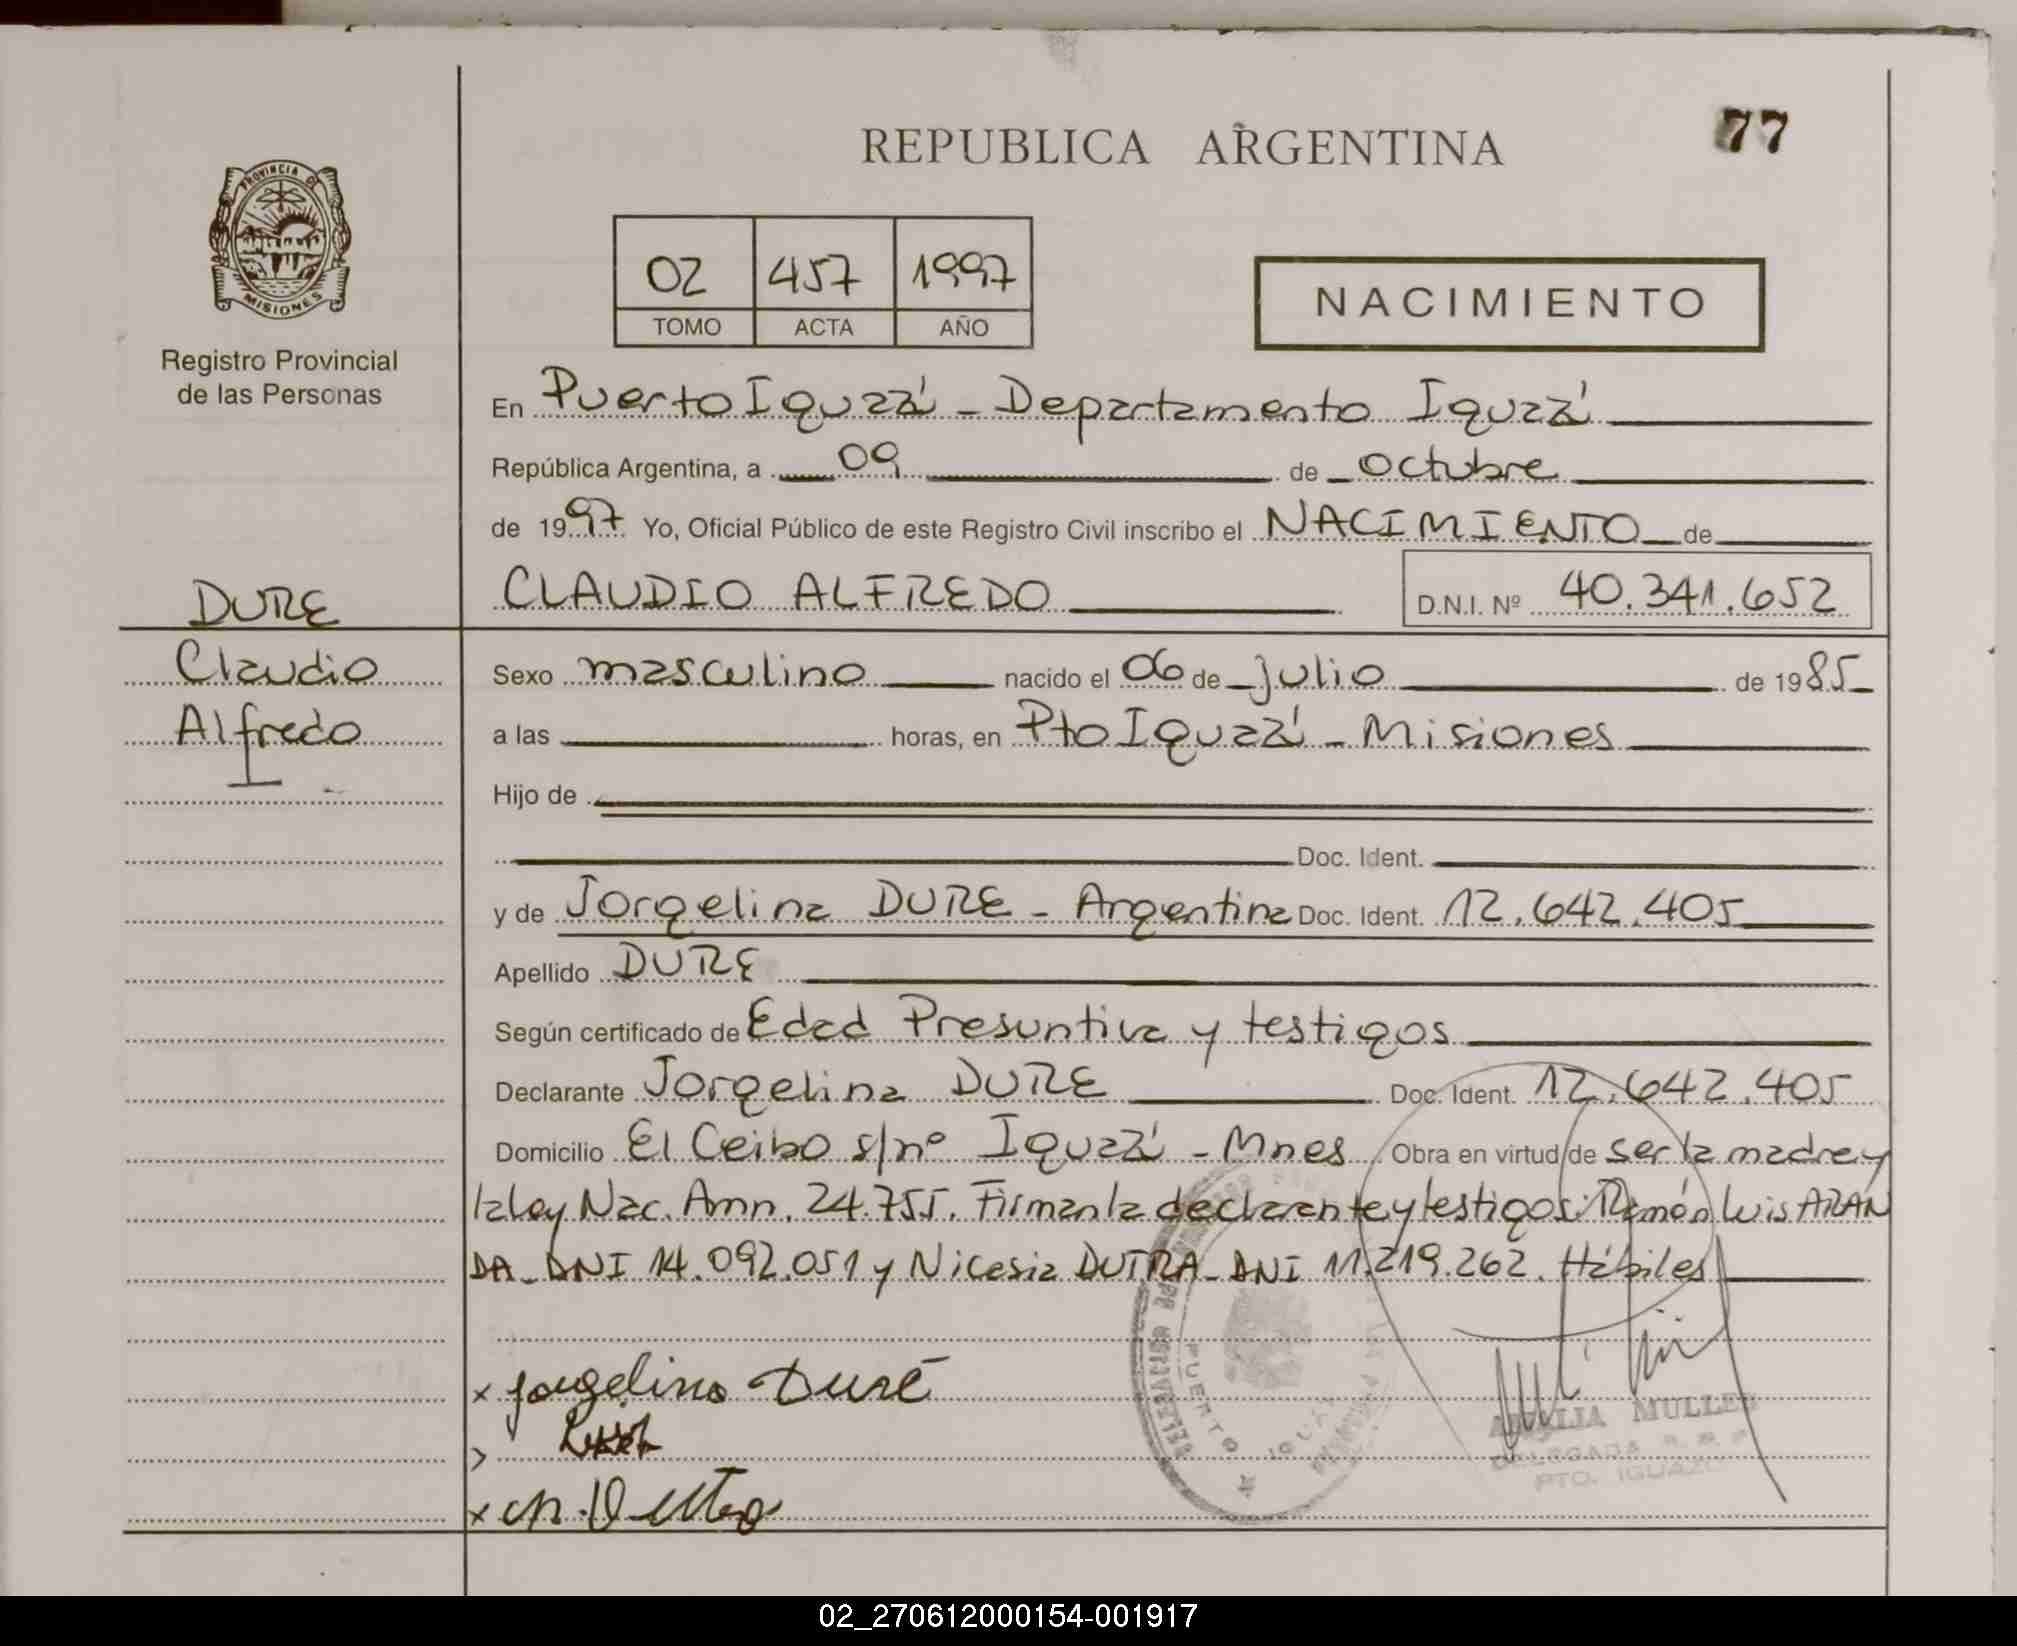 77
REPUBLICA ARGENTINA
PROVINCIA DE
MISIONES
Registro Provincial
de las Personas
02 457 1997
TOMO ACTA AÑO
NACIMIENTO
En Puerto Iguazú - Departamento Iguazú
República Argentina, a 09 de octubre
de 1997 Yo, Oficial Público de este Registro Civil inscribo el NACIMIENTO de
DURE
CLAUDIO ALFREDO D.N.I. Nº 40.341.652
Claudio
Alfredo
Sexo masculino nacido el 06 de julio de 1985
a las horas, en Pto Iguazú - Misiones
Hijo de
Doc. Ident.
y de Jorgelina DURE - Argentina Doc. Ident. 12.642.405
Apellido DURE
Según certificado de Edad Presuntiva y testigos
Declarante Jorgelina DURE Doc. Ident. 12.642.405
Domicilio El Ceibo s/nº Iguazú - Mnes Obra en virtud de ser la madre y
la ley Nac. Amn. 24.755. Firman la declarante y testigos: Ramón Luis ARAN
DA - DNI 14.092.051 y Nicesia DUTRA - DNI 11.219.262. Hábiles
x Jorgelina Duré
AMALIA MULLER
DELEGADA R. P. P.
PTO. IGUAZU
PUERTO IGUAZU
02_270612000154-001917